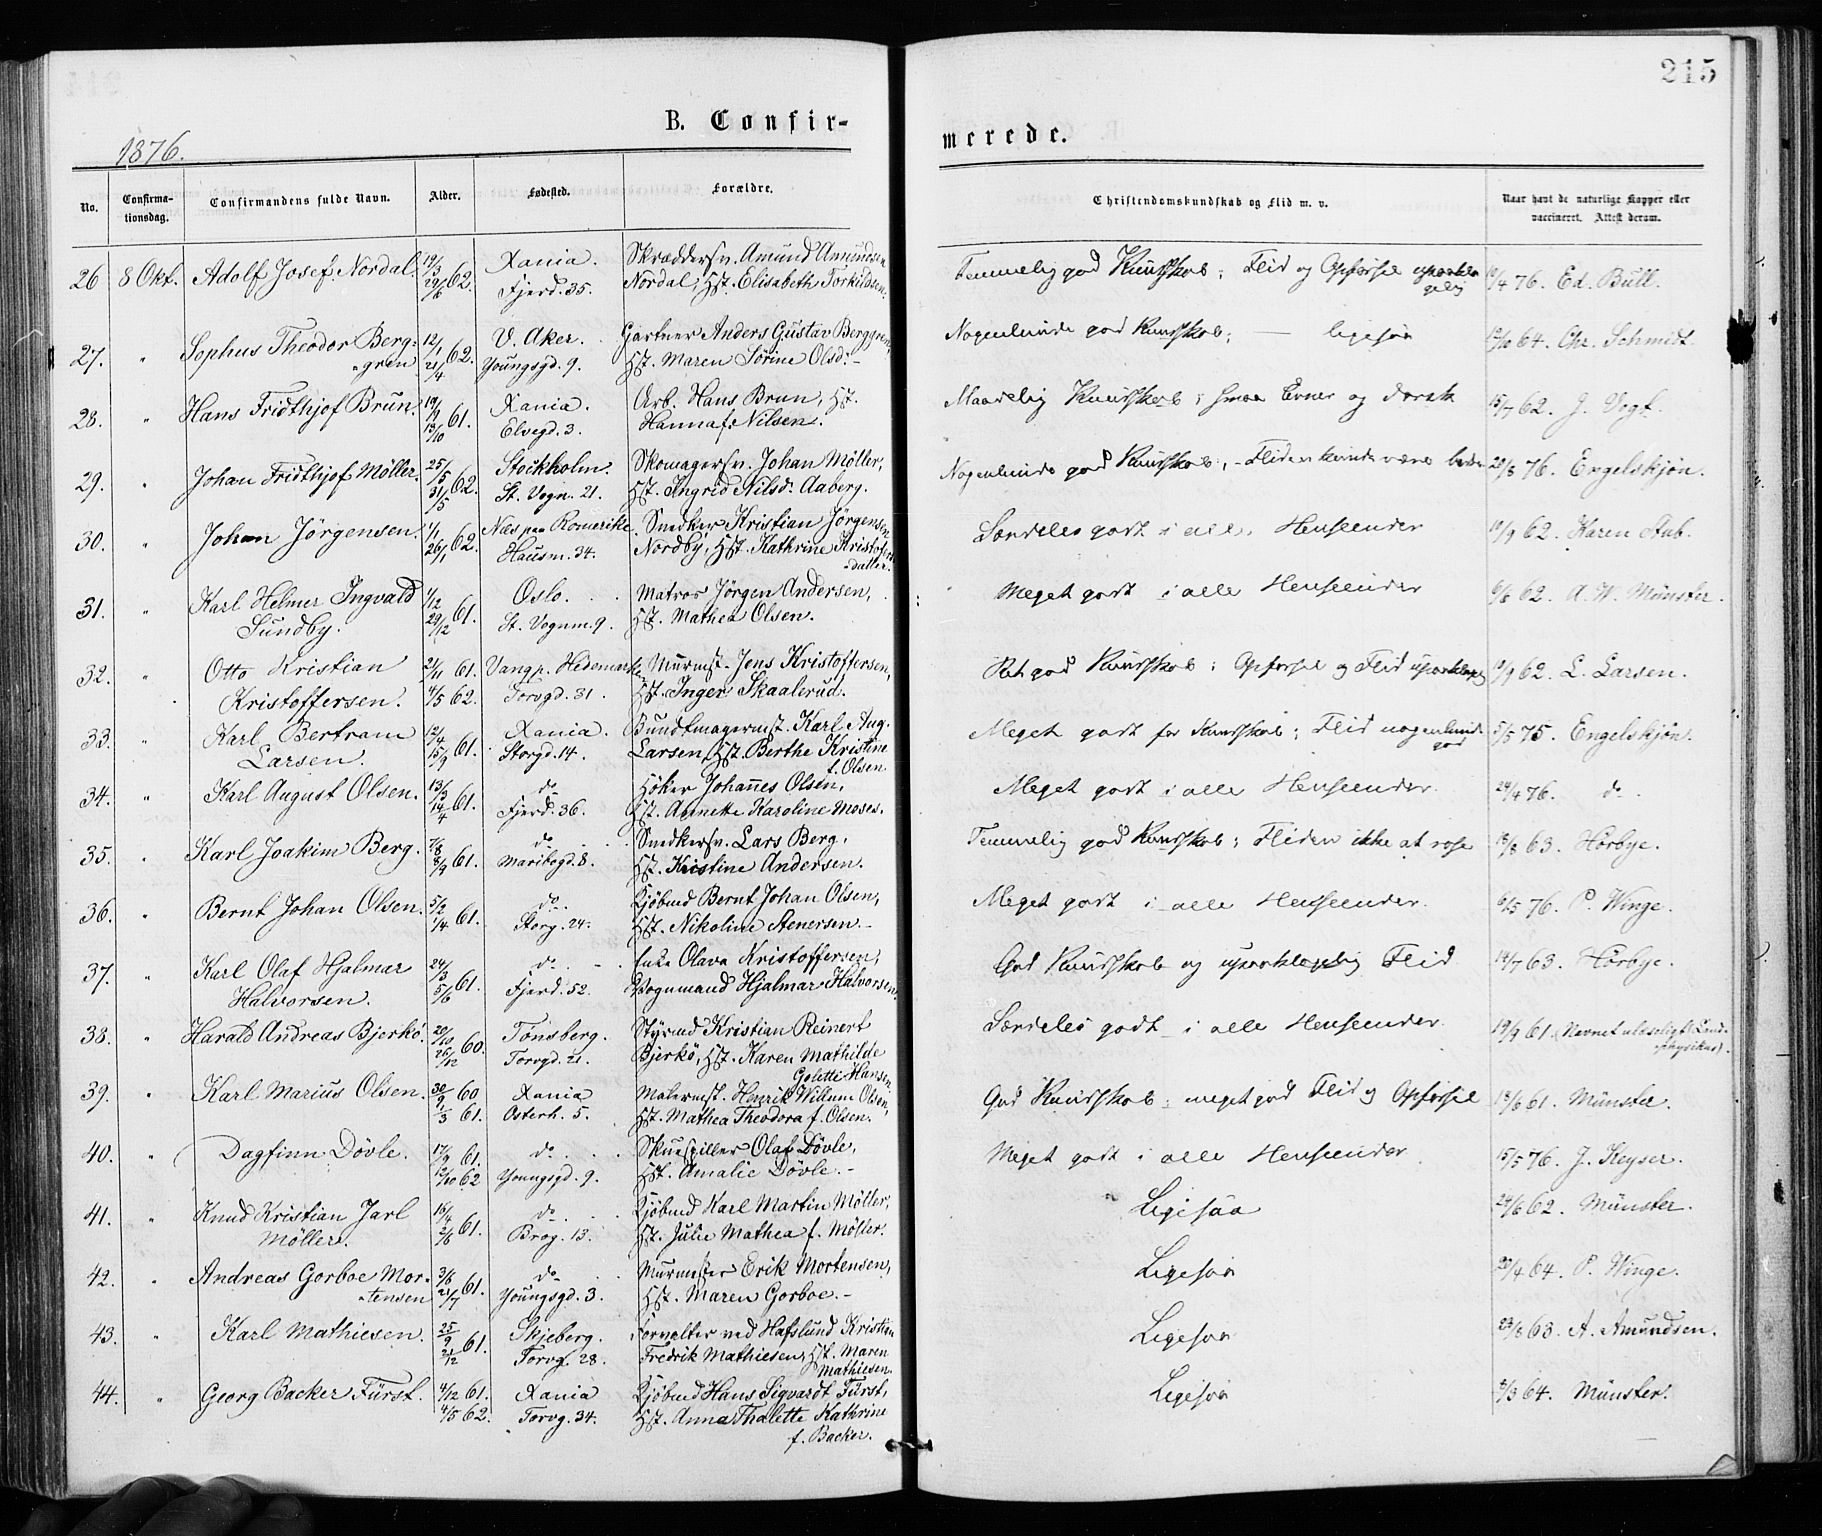 215
B. Confir-
merede.
1876.
No.
Confirma-
tionsdag.
Confirmandens fulde Navn.
Alder.
Fødested.
Forældre.
Christendomskundskab og Flid m. v.
Naar havt de naturlige Kopper eller
vaccineret. Attest derom.
26 8 Okt. Adolf Josef Nordal. 19/3 29/6 62. Xania. Skræddersv. Amund Amundsen Temmelig god Kundskab; Flid og Opførsel upaakla- 10/4 76. Ed. Bull.
Fjerd. 35. Nordal, Hst. Elisabeth Torkildsen. gelig
27. " Sophus Theodor Berg- 12/1 21/4 62. V. Aker. Gartner Anders Gustav Berggren, Nogenlunde god Kundskab; — ligesaa 12/10 64. Chr. Schmidt.
gren Youngsgd. 9. Hst. Maren Sørine Olsd. -
28. " Hans Fridthjof Brun. 19/9 13/10 61. Xania. Arb. Hans Brun, Hst. Maadelig Kundskab; smaa Evner og dorsk 15/7 62. J. Vogt.
Elvegd. 3. Hanna f. Nilsen.
29. " Johan Fridthjof Møller. 25/5 31/5 62. Stockholm. Skomagersv. Johan Møller, Nogenlunde god Kundskab; - Fliden kunde være bedre 29/8 76. Engelskjøn.
St. Vogn. 21. Hst. Ingrid Nilsd. Aaberg.
30. " Johan Jörgensen. 1/1 26/1 62. Næs paa Romerike. Snedker Kristian Jörgensen Særdeles godt i alle Henseender 19/9 62. Karen Aub.
Hausm. 34. Nordby, Hst. Kathrine Kristofers-
datter.
31. " Karl Helmer Ingvald 1/12 29/12 61. Oslo. Matros Jörgen Andersen, Meget godt i alle Henseender 6/8 62. A. W. Münster.
Sundby. St. Vognm. 9. Hst. Mathea Olsen.
32. " Otto Kristian 21/11 61. Vang p. Hedemarke. Murmst. Jens Kristoffersen, Ret god Kundskab; Opførsel og Flid upaaklagelig 19/9 62. L. Larsen.
Kristoffersen. 4/5 62. Torvgd. 31. Hst. Inger Skaalerud.
33. " Karl Bertram 12/4 15/9 61. Xania. Bundtmagermst. Karl Aug. Meget godt for Kundskab; Flid nogenlunde 5/5 75. Engelskjøn.
Larsen. Storgd. 14. Larsen, Hst. Berthe Kristine god
f. Olsen
34. " Karl August Olsen. 13/3 14/4 61. do Höker Johannes Olsen, Meget godt i alle Henseender. 24/4 76. do.
Fjerd. 36. Hst. Annette Karoline Moses.
35. " Karl Joakim Berg. 7/8 8/9 61. do Snedkersv. Lars Berg. Temmelig god Kundskab; Fliden ikke at rose 18/8 63. Hörbye.
Maribogd. 8. Hst. Kristine Andersen.
36. " Bernt Johan Olsen. 5/2 1/4 61. do. Kjöbmd Bernt Johan Olsen, Meget godt i alle Henseender. 6/5 76. P. Winge.
Storg. 24. Hst. Nikoline Stenersen. -
37. " Karl Olaf Hjalmar 24/3 5/6 61. do Enke Olava Kristoffersen, God Kundskab og upaaklagelig Flid 14/7 63. Hörbye.
Halvorsen. Fjerd. 52. Vognmand Hjalmar Halvorsen.
38. " Harald Andreas Bjerkö. 20/10 26/12 60. Tönsberg. Styrmd Kristian Reinert Særdeles godt i alle Henseender. 19/9 61. (Navnet ulæseligt Land-
Torvgd. 21. Bjerkö, Hst. Karen Mathilde physikus).
Goletti Hansen
39. " Karl Marius Olsen. 30/9 60 Xania Malermst. Henrik Willum Olsen, God Kundskab; meget god Flid og Opførsel 18/6 61. Münster.
1/3 61. Osterh. 5. Hst. Mathea Theodora f. Olsen.
40. " Dagfinn Dövle. 17/9 61. do Skuespiller Olaf Dövle, Meget godt i alle Henseender 15/5 76. J. Keyser.
12/10 62 Youngsgd. 9. Hst. Amalie Dövle. -
41. " Knud Kristian Jarl 16/4 2/6 61. do Kjöbmd Karl Martin Möller, Ligesaa 24/6 62. Münster.
Möller. Brog. 13. Hst. Julie Mathea f. Möller.
42. " Andreas Gorboe Mor- 3/6 21/7 61. do Murmester Erik Mortensen, Ligesaa 20/4 64. P. Winge.
tensen Youngsgd. 3. Hst. Maren Gorboe. -
43. " Karl Mathiesen. 25/9 2/12 61. Skjeberg. Forvalter ved Hafslund Kristian Ligesaa 23/8 63. A. Amundsen.
Torvg. 28. Fredrik Mathiesen, Hst. Maren
Mathiesen
44. " Georg Backer Fürst. 4/12 61. Xania Kjöbmd Hans Sigvardt Fürst, Ligesaa 8/3 64. Münster.
4/5 62. Torvg. 34. Hst. Anna Thalette Kathrine
f. Backer.